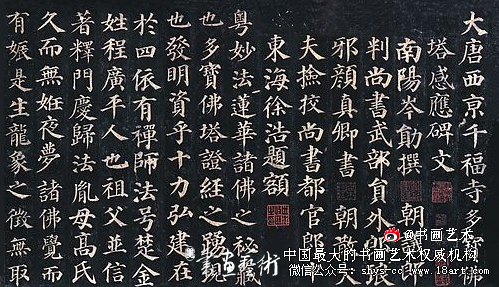 大唐西京千福寺多寶佛
塔感應碑文
南陽岑勛撰 朝議郎
判尚書武部員外郎琅
邪顏真卿書 朝散大
夫撿挍尚書都官郎
東海徐浩題額
粵妙法蓮華諸佛之秘藏
也多寶佛塔證經之踴現
也發明資乎十力弘建在
於四依有禪師法号楚金
姓程廣平人也祖父並信
著釋門慶歸法胤母髙氏
久而無姙夜夢諸佛覺而
有娠是生龍象之徵無取
@书画艺术
中国最大的书画艺术权威机构
微信公众号: shys-cc www.18art.com